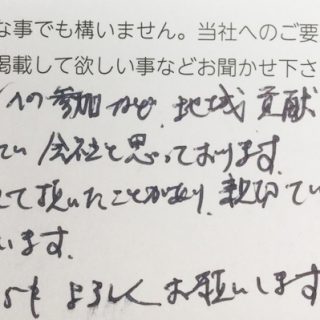 な事でも構いません。当社へのご要
掲載して欲しい事などお聞かせ下さ
への参加など、地域貢献
てい会社と思っております。
して頂いたことがあり、親切でい
います。
よろしくお願いします